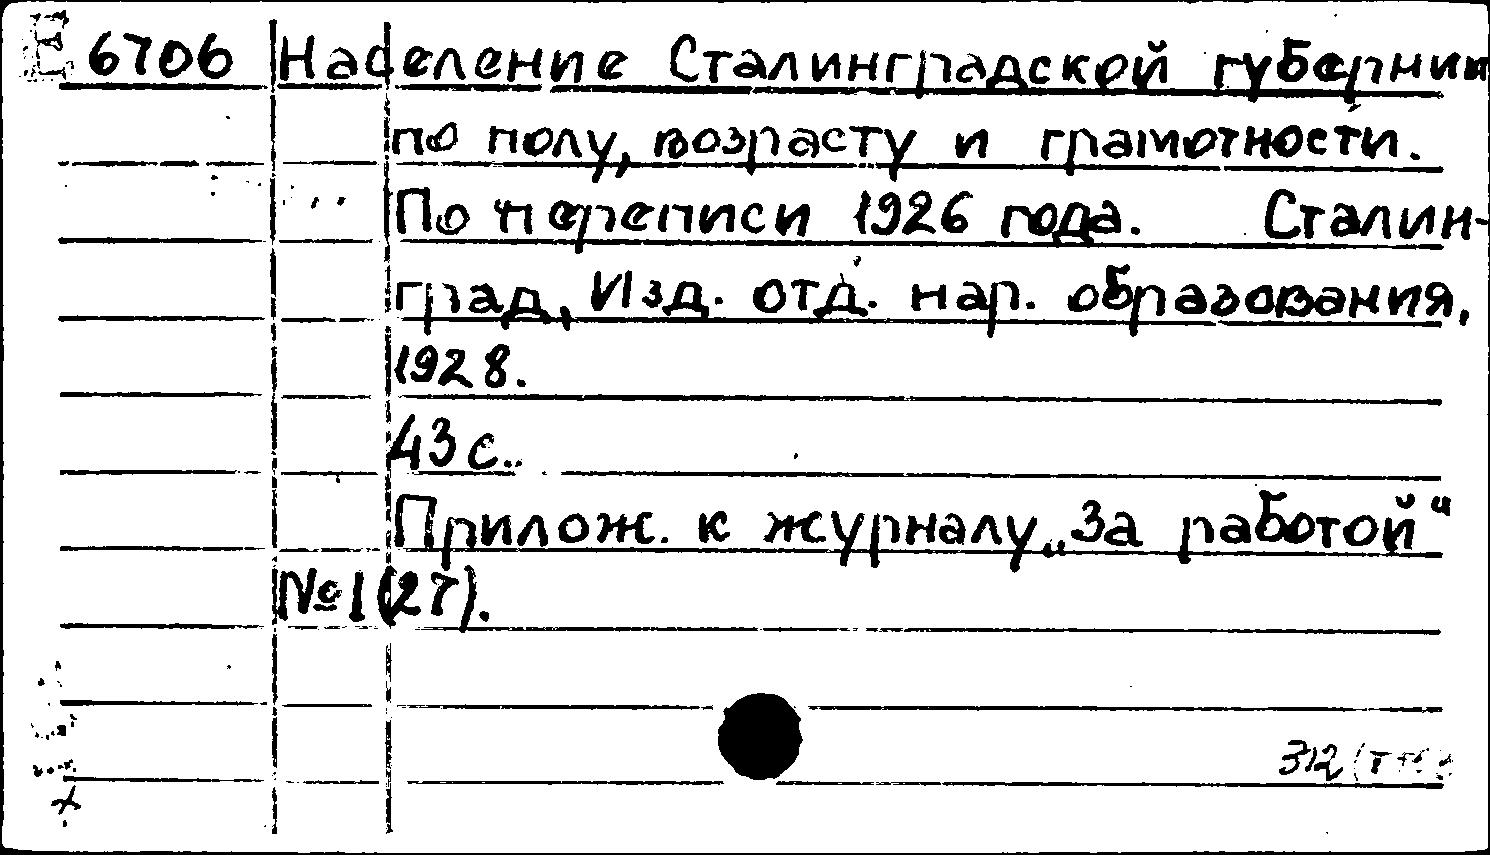 Е 6706 Население Сталинградской губернии
по полу, возрасту и грамотности.
По переписи 1926 года. Сталин-
град, Изд. отд. нар. образования,
1928.
43 с.
Прилож. к журналу „За работой“
№ 1 (27).
312